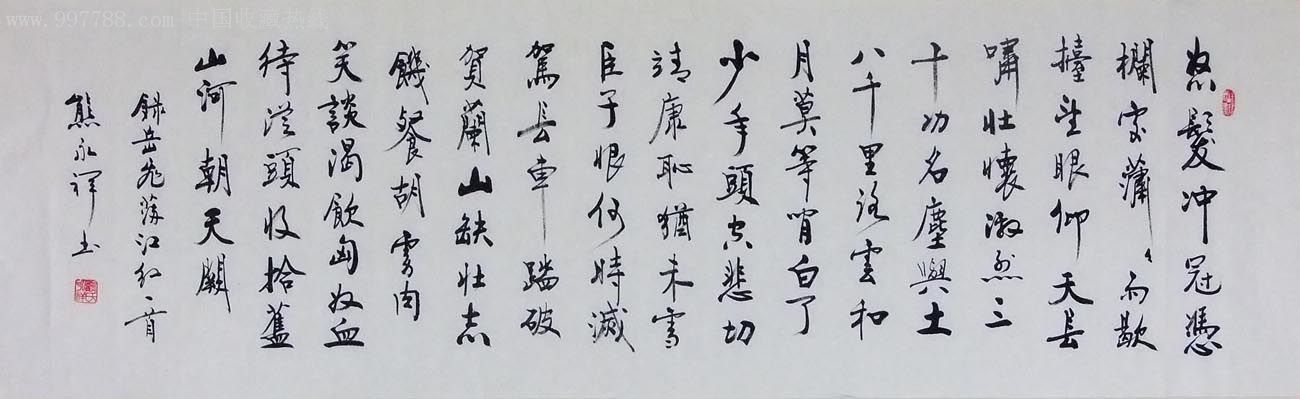 www.997788.com 中国收藏热线
怒髮冲冠憑
欄處瀟〻雨歇
擡望眼仰天長
嘯壯懷激烈三
十功名塵與土
八千里路雲和
月莫等閒白了
少年頭空悲切
靖康恥猶未雪
臣子恨何時滅
駕長車踏破
賀蘭山缺壯志
饑餐胡虜肉
笑談渴飲匈奴血
待從頭收拾舊
山河朝天闕
録岳飛满江红一首
熊永祥书